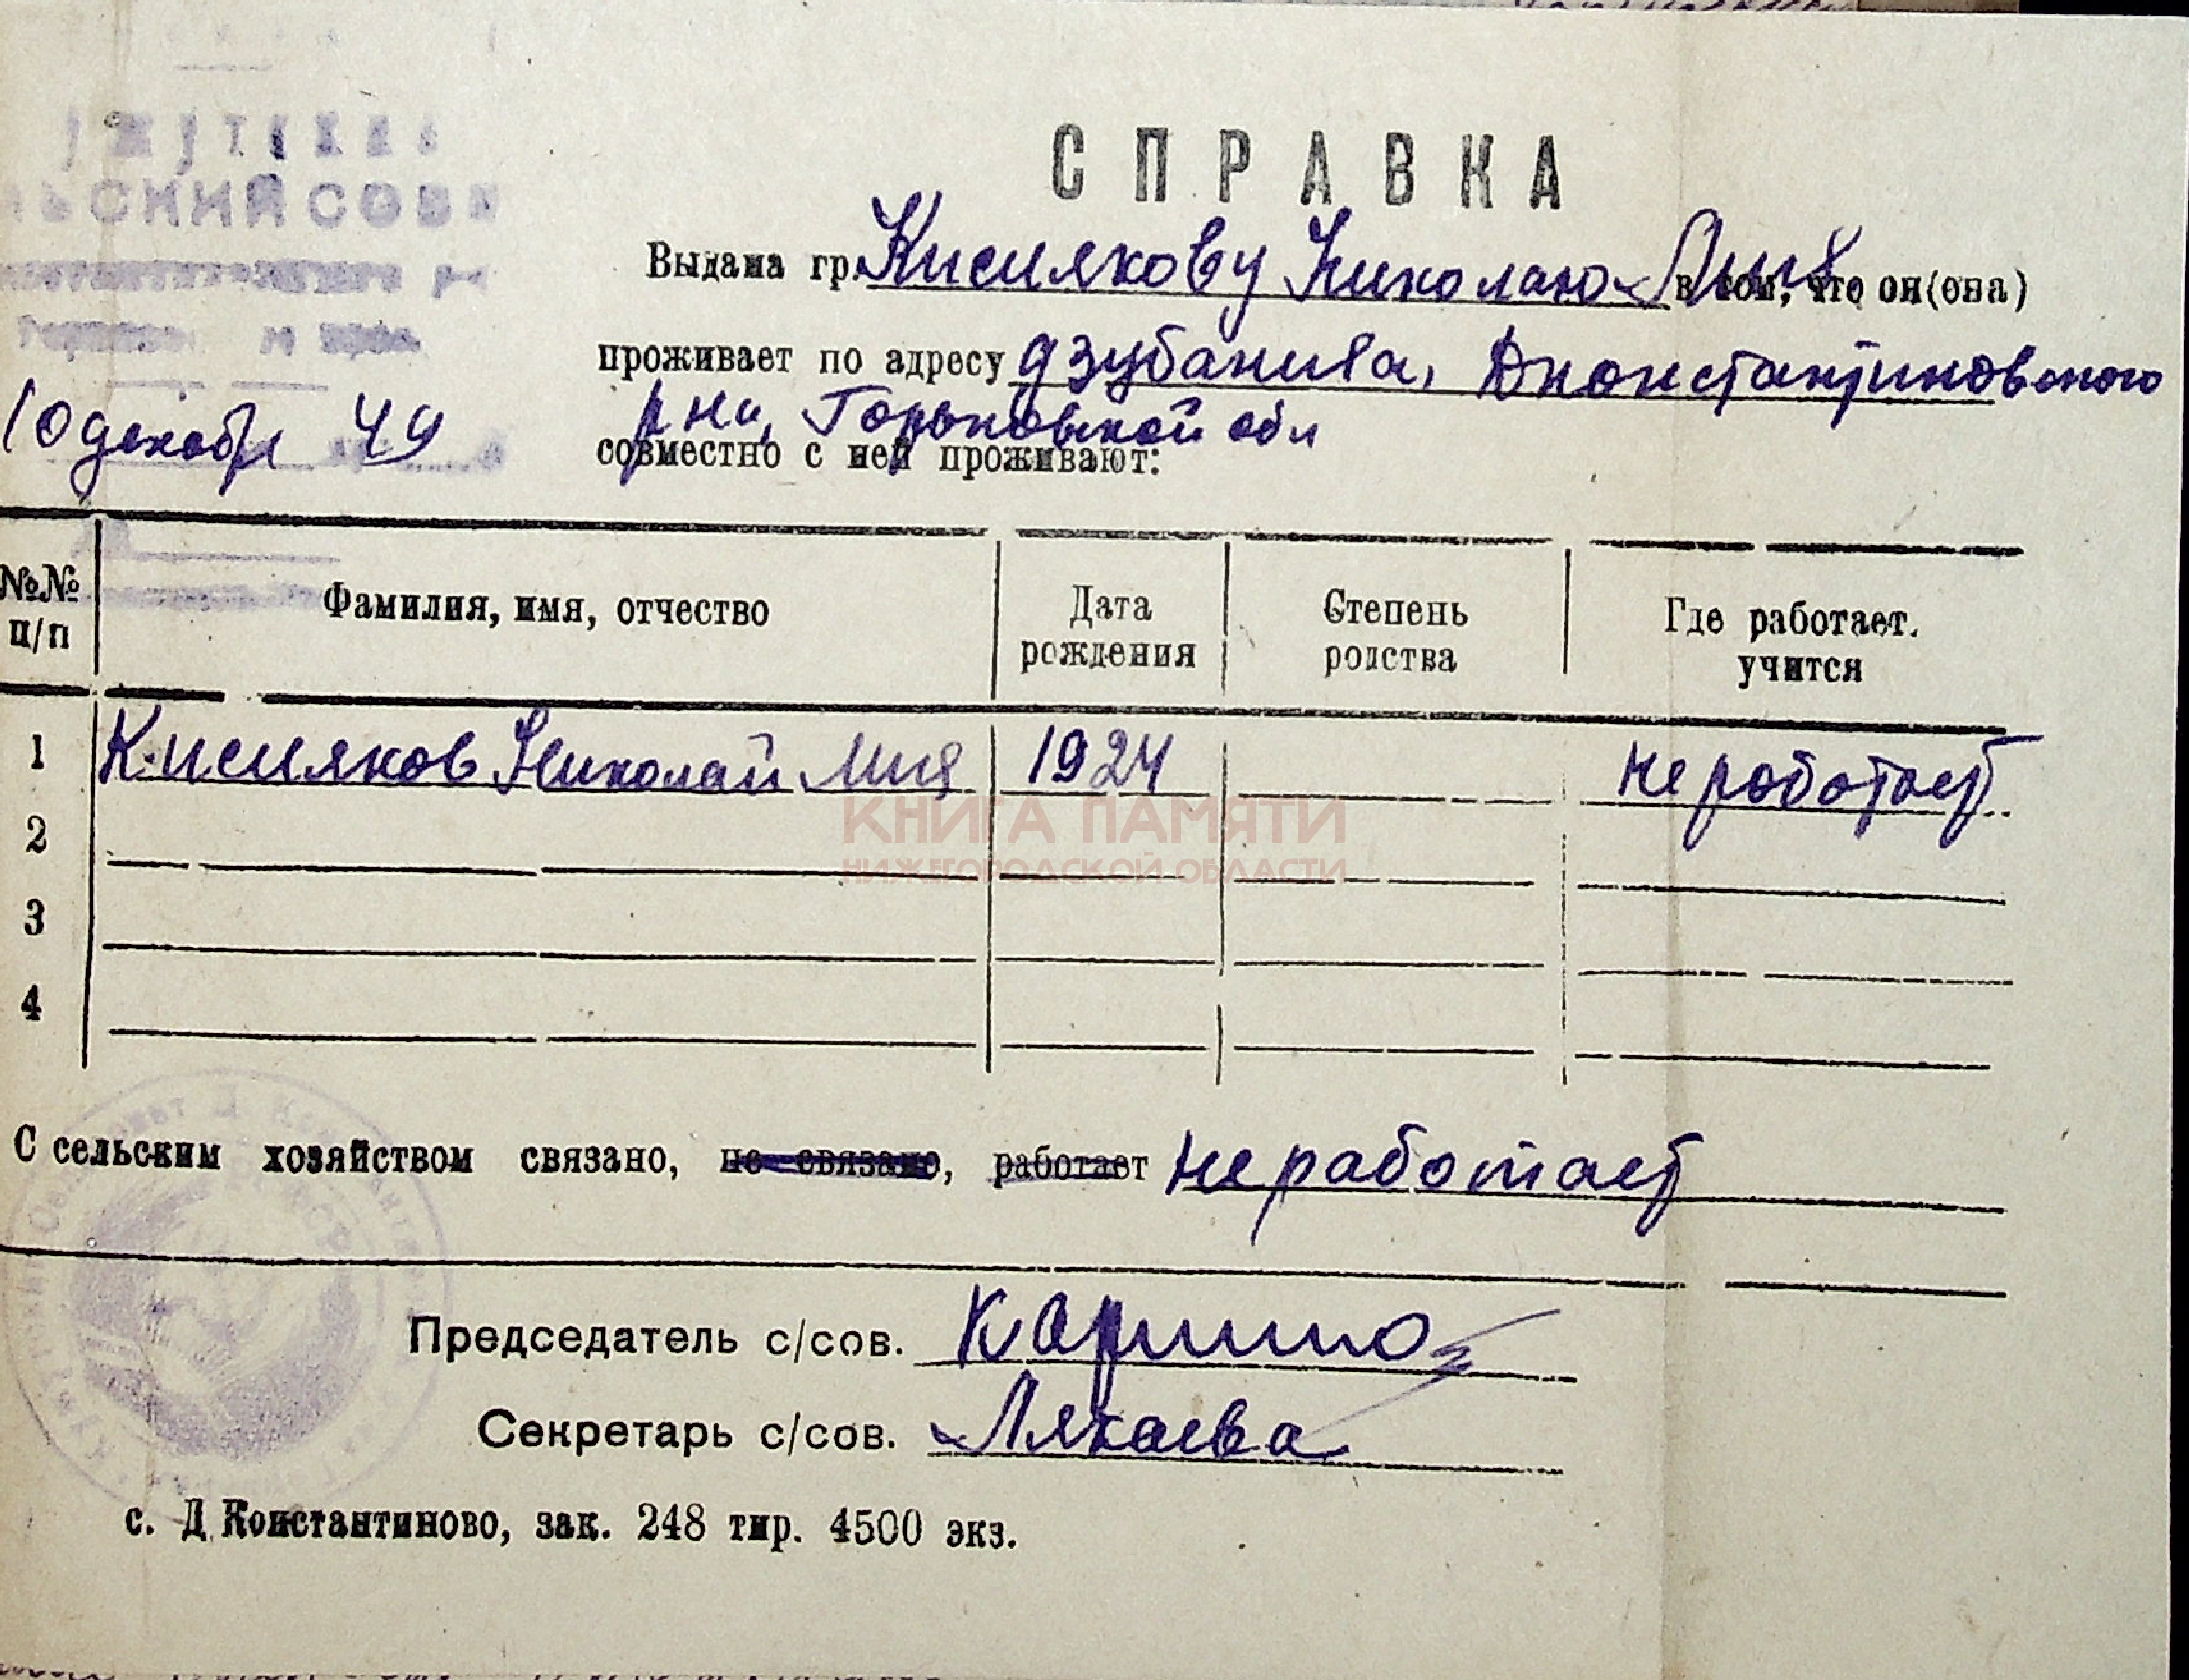 СПРАВКА
Выдана гр. Кислякову Николаю в том, что он(она)
проживает по адресу д Зубаниха, Дконстантиновского
рна, Горьковской обл
совместно с ней проживают:
ЛЬСКИЙ СОВЕ
10 декабр 49
№№ п/п Фамилия, имя, отчество Дата рождения Степень родства Где работает. учится
1 Кисляков Николай 1924 не работает
2
3
4
КНИГА ПАМЯТИ
НИЖЕГОРОДСКОЙ ОБЛАСТИ
С сельским хозяйством связано, не связано, работает не работает
Председатель с/сов.
Секретарь с/сов.
с. Д Константиново, зак. 248 тир. 4500 экз.